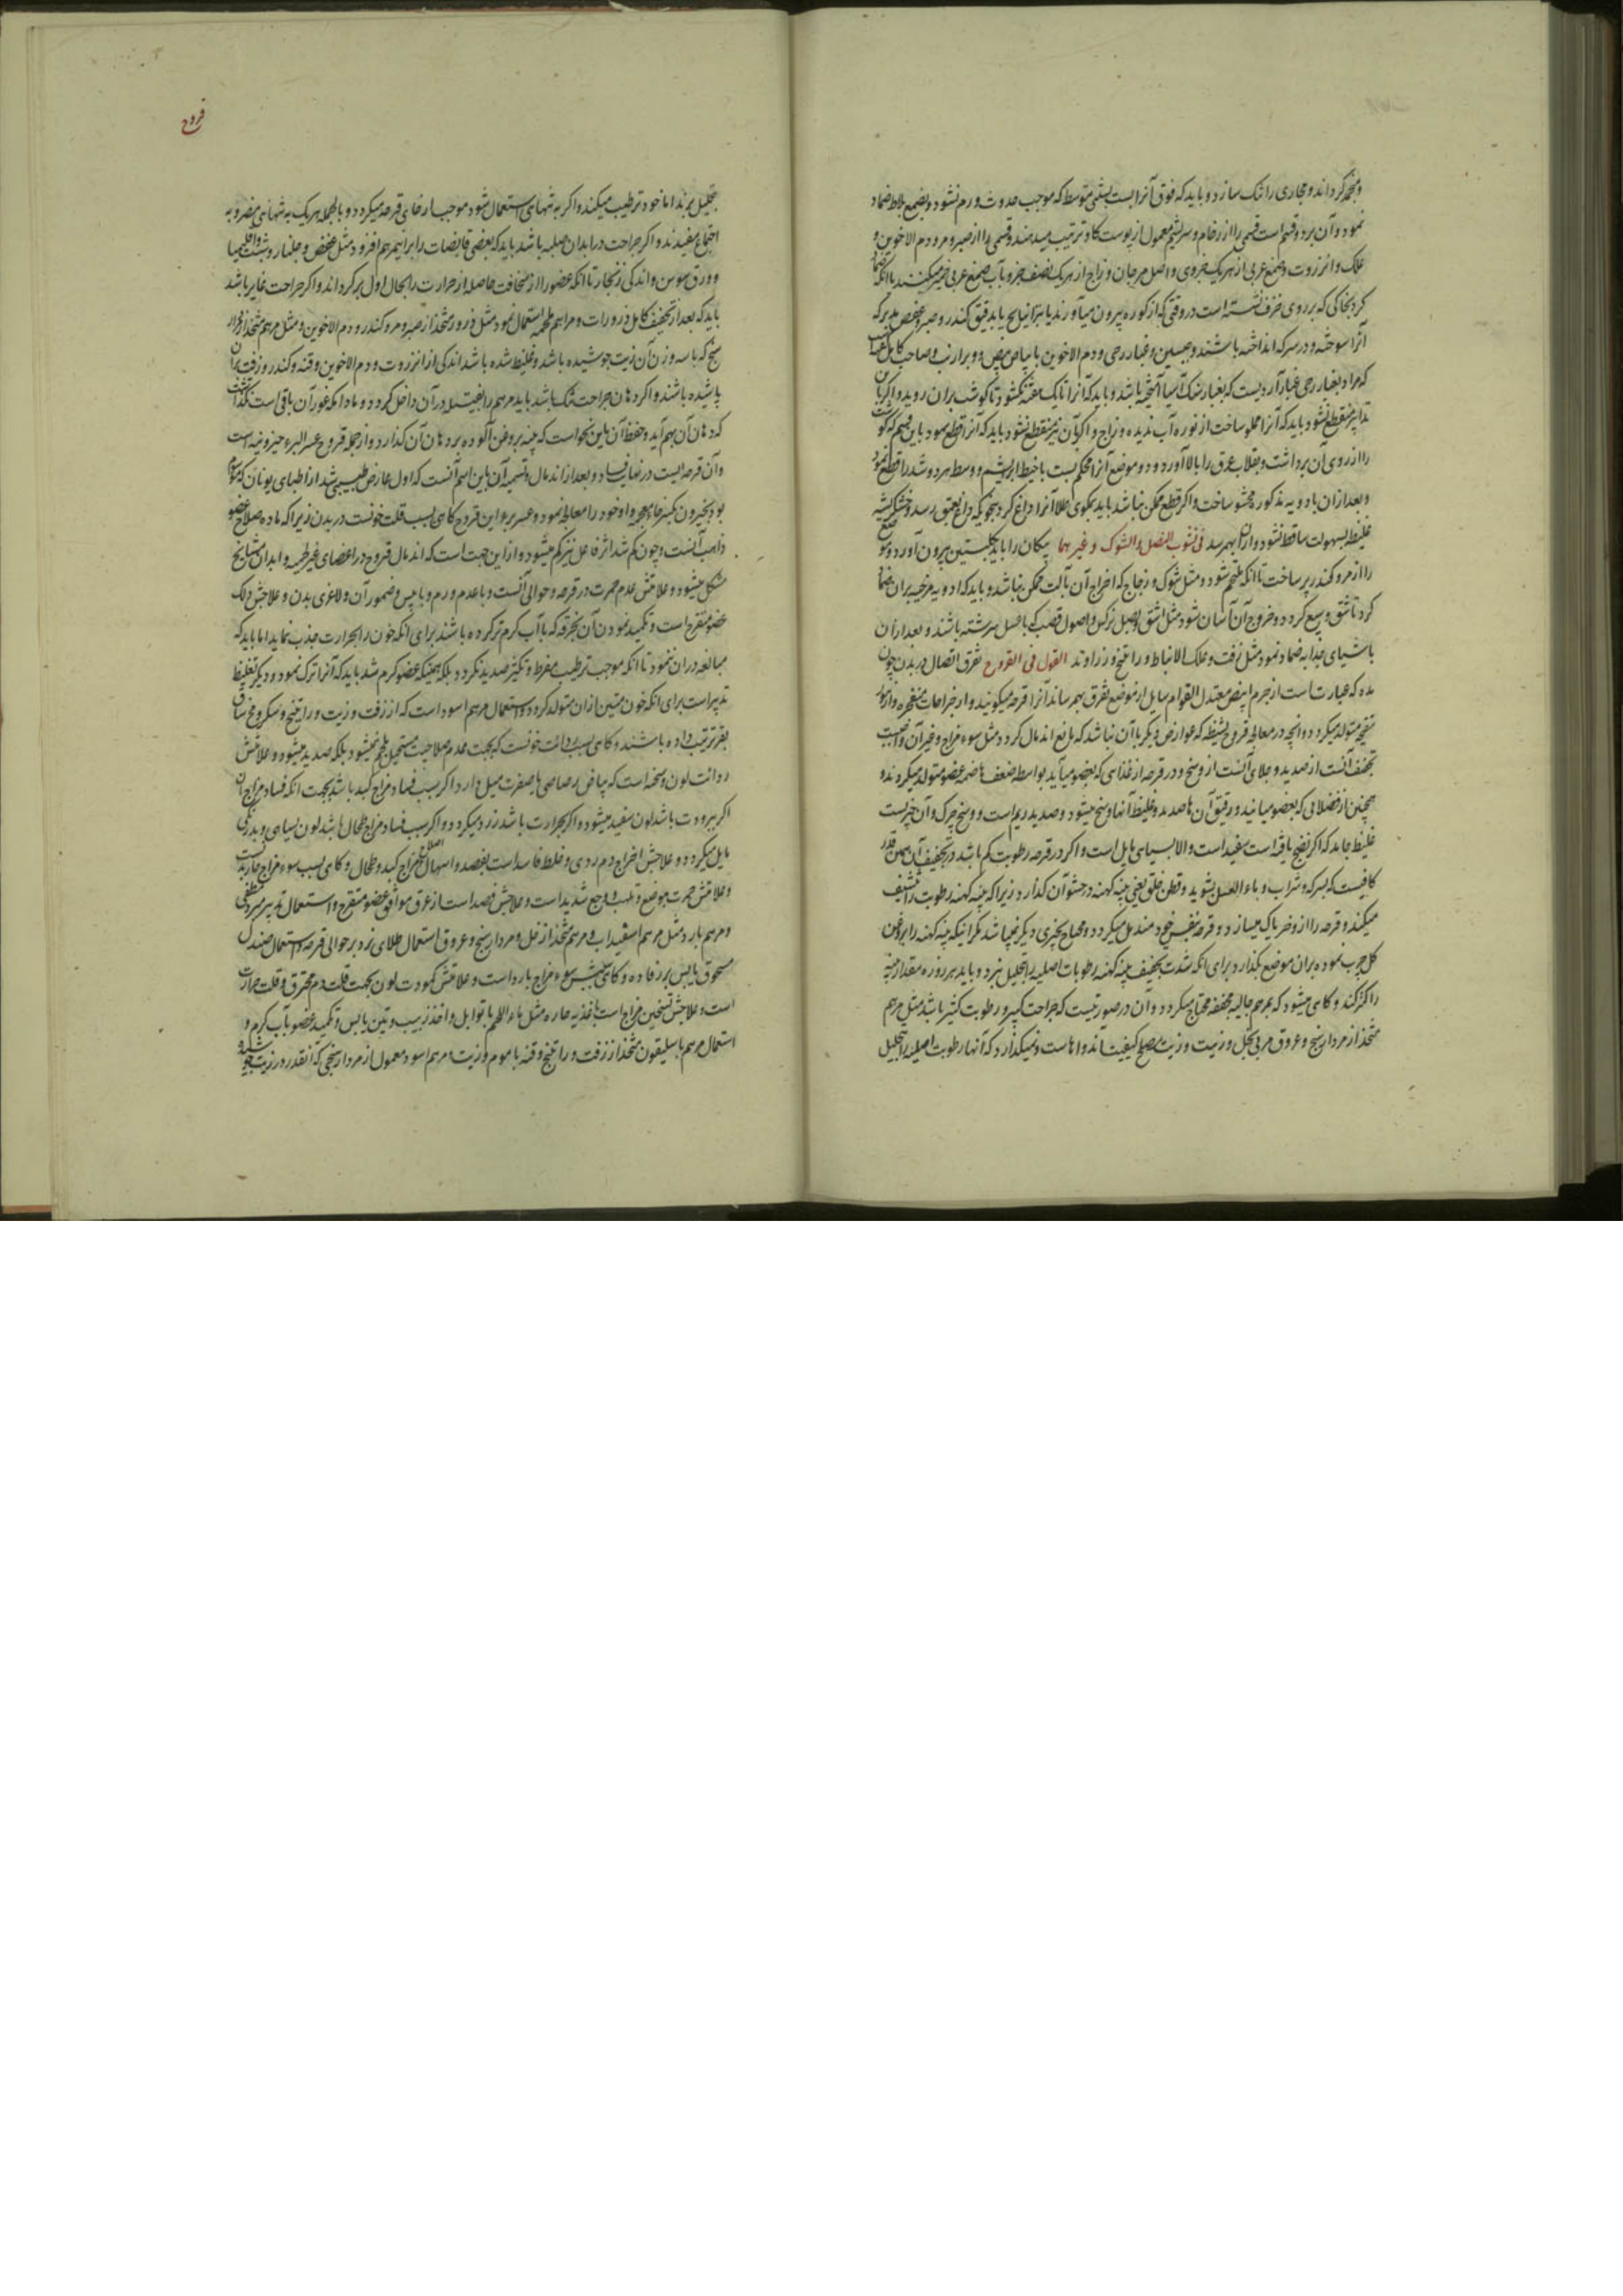 و منجمد کرداند و مجاری را تنک سازد و باید که فوق آنرا ببست ببستنی متوسط که موجب حدوث ورم نشود و بضمغ بلاط ضماد
نمود و آن بر دو قسم است قسمی را از رخام و سریشم معمول از پوست کاو ترتیب میدهند و قسمی را از صبر و مر و دم الاخوین و
علک و انزروت و صمغ عربی از هر یک جزوی و اصل مرجان و زاج از هر یک نصف جزو بآب صمغ عربی خمیر میکنند یا آنکه
کرد بخاکی که بر روی خزف نشسته است در وقتی که از کوره بیرون میآورند یا بدقیق کندر و صبر
آنرا سوخته و در سرکه انداخته باشند و جبسین و غبار رحی و دم الاخوین با بیاض بیض و وبر ارنب و صاحب کامل
که مراد بغبار رحی غبار آردیست که بغبار سنک آسیا آمیخته باشد و باید که آنرا تا یک هفته نکشود تا کوشت بران روید و اگر
تدابیر منقطع نشود باید که آنرا مملو ساخت از نوره آب ندیده و زاج و اگر بآن نیز منقطع نشود باید که آنرا قطع نمود باین قسم که کوشت
را از روی آن برداشت و بقلاب عرق را بالا آورد و دو موضع آنرا محکم بست با خیط ابریشم و وسط هر دو شد را قطع نمود
و بعد ازان بادویه مذکوره محشو ساخت و اگر قطع ممکن نباشد باید بمکوی طلا آنرا داغ کرد بنحویکه داغ بعمق رسد و خشکریشه
غلیظ بسهولت ساقط نشود و ازان بهم رسد فی نشوب النصل و الشوک و غیرهما پیکان را باید بکلبتین بیرون آورد و موضع
را از مر و کندر پر ساخت تا آنکه ملتحم شود و مثل شوک و زجاج که اخراج آن بآلت ممکن نباشد و باید که ادویه مرخیه بران ضماد
کرد تا شق وسیع کردد و خروج آن آسان شود مثل اشق و بصل نرکس و اصول قصب که با عسل سرشته باشند و بعد ازان
باشیای جذابه ضماد نمود مثل زفت و علک الانباط و راتینج و زراوند القول فی القروح تفرق اتصال در بدن چون
مده که عبارتست از جرم ابیض معتدل القوام سایل از موضع تفرق بهم رساند آنرا قرحه میکویند و از جراحات منفجره و از بثور
متقیح متولد میکردد و آنچه در معالجه قروح بشرطیکه عوارض دیکر با آن نباشد که مانع اندمال کردد مثل سوء مزاج و غیر آن واجبست
تجفیف آنست از صدید و جلای آنست از وسخ و در قرحه از غذائی که بعضو میآید بواسطه ضعف هاضمه عضو متولد میکردند و
همچنین از فضلاتی که بعضو میآیند و رقیق آن ها صدید و غلیظ آنها وسخ میشود و صدید ریم است و وسخ چرک و آن چیزیست
غلیظ جامد که اکر نضج یافته است سفید است و الا بسیاهی مایل است و اکر در قرحه رطوبت کم باشد در تجفیف آن همین قدر
کافیست که بسرکه و شراب و ماء العسل بشوید و قطن خلق یعنی پنبه کهنه در حشو آن کذارد زیرا که پنبه کهنه رطوبت را تنشیف
میکند و قرحه را از وضر پاک میسازد و قرحه بنفس خود مندمل میکردد و محتاج بچیزی دیکر نمیباشد مکر اینکه پنبه کهنه را بروغن
کل چرب نموده بران موضع بکذارد برای آنکه شدت تجفیف پنبه کهنه رطوبات اصلیه را تحلیل نبرد و باید هر روزه مقدار پنبه
را کمتر کند و کاهی میشود که بمرهم جالیه مجففه محتاج میکردد و آن در صورتیست که جراحت کبیر و رطوبت کثیر باشد مثل مرهم
متخذ از مردارسنج و عروق مربی بخل و زیت و زیت مصلح کیفیت آن دواهاست و نمیکذارد که آنها رطوبت اصلیه را تحلیل
قروح
تحلیل برند اما خود ترطیب میکند و اکر به تنهائی استعمال شود موجب ارخای قرحه میکردد و بالجمله هر یک به تنهائی مضر و به
اجتماع مفیدند و اکر جراحت در ابدان صلبه باشد باید که بعضی قابضات را بر این مرهم افزود مثل عفص و جلنار و شب و اقلیمیا
و ورق سوسن و اندکی زنجار تا آنکه عضو را از سخافت حاصله از حرارت بحال اول برکرداند و اکر جراحت غایر باشد
باید که بعد از تجفیف کامل ذرورات و مراهم ملحمه استعمال نمود مثل ذرور متخذ از صبر و مر و کندر و دم الاخوین و مثل مرهم متخذ از مردار
سنج که با سه وزن آن زیت جوشیده باشد و غلیظ شده باشد اندکی از انزروت و دم الاخوین و قنه و کندر و زفت بران
پاشیده باشند و اکر دهان جراحت تنک باشد باید مرهم را بفتیله در آن داخل کردد و مادامکه غور آن باقی است نکذاشت
که دهان آن بهم آید و حفظ آن باین نحو است که پنبه بروغن آلوده بر دهان آن کذارد و از جمله قروح عسر البرء خیرونیه است
و آن قرحه ایست در نهایت فساد و بعد از اندمال و تسمیه آن باین اسم آنست که اول عارض طبیبی شد از اطبای یونان که موسوم
بود بخیرون و او خود را معالجه نمود و عسر برء این قروح کاهی بسبب قلت خونست در بدن زیرا که ماده صلاح عضو
ذاهب آنست و چون کم شد اثر فاعل نیز کم میشود و ازین جهت است که اندمال قروح در اعضای غیر لحمیه و ابدان مشایخ
مشکل میشود و علامتش عدم حمرت در قرحه و حوالی آنست و با عدم ورم و با یبس و ضمور آن و لاغری بدن و علاجش دلک
عضو متقرح است و تکمید نمودن آن بخرقه که بآب کرم تر کرده باشند برای آنکه خون را بحرارت جذب نماید اما باید که
مبالغه دران ننمود تا آنکه موجب ترطیب مفرط و تکثیر صدید نکردد بلکه همینکه عضو کرم شد باید که آنرا ترک نمود و دیکر تغلیظ
تدبیر است برای آنکه خون متین ازان متولد کردد و استعمال مرهم اسود است که از زفت و زیت و راتینج و مخ ساق
بقر ترتیب داده باشند و کاهی بسبب ردائت خونست که بجهت عدم صلاحیت مستحیل بلحم نمیشود بلکه صدید میشود و علامتش
ردائت لون و سخنه است که ببیاض رصاصی یا صفرت میل دارد اکر بسبب فساد مزاج کبد باشد بجهت آنکه فساد مزاج آن
اکر ببرودت باشد لون سفید میشود و اکر بحرارت باشد زرد میکردد و اکر بسبب فساد مزاج طحال باشد لون بسیاهی و بدرنکی
مایل میکردد و علاجش اخراج دم ردی و خلط فاسد است بفصد و اسهال و اصلاح مزاج کبد و طحال و کاهی بسبب سوء مزاج حار است
و علامتش حمرت موضع و تلهب و وجع شدید است و علاجش فصد است از عرق موافق عضو متقرح و استعمال تدبیر مبرد مطفی
و مرهم بارد مثل مرهم اسفیداب و مرهم متخذ از خل و مردارسنج و عروق استعمال طلای زرد بر حوالی قرحه و استعمال صندل
مسحوق یابس بر رفاده و کاهی بسبب سوء مزاج بارد است و علامتش کمودت لون بجهت قلت دم محترق و قلت حرارت
است و علاجش تسخین مزاج است باغذیه حاره مثل ماء اللحم با توابل و اخذ زبیب و تین یابس و تکمید عضو بآب کرم و
استعمال مرهم باسلیقون متخذ از زفت و راتینج و قنه با موم و زیت و مرهم اسود معمول از مردارسنجی که آنقدر در زیت